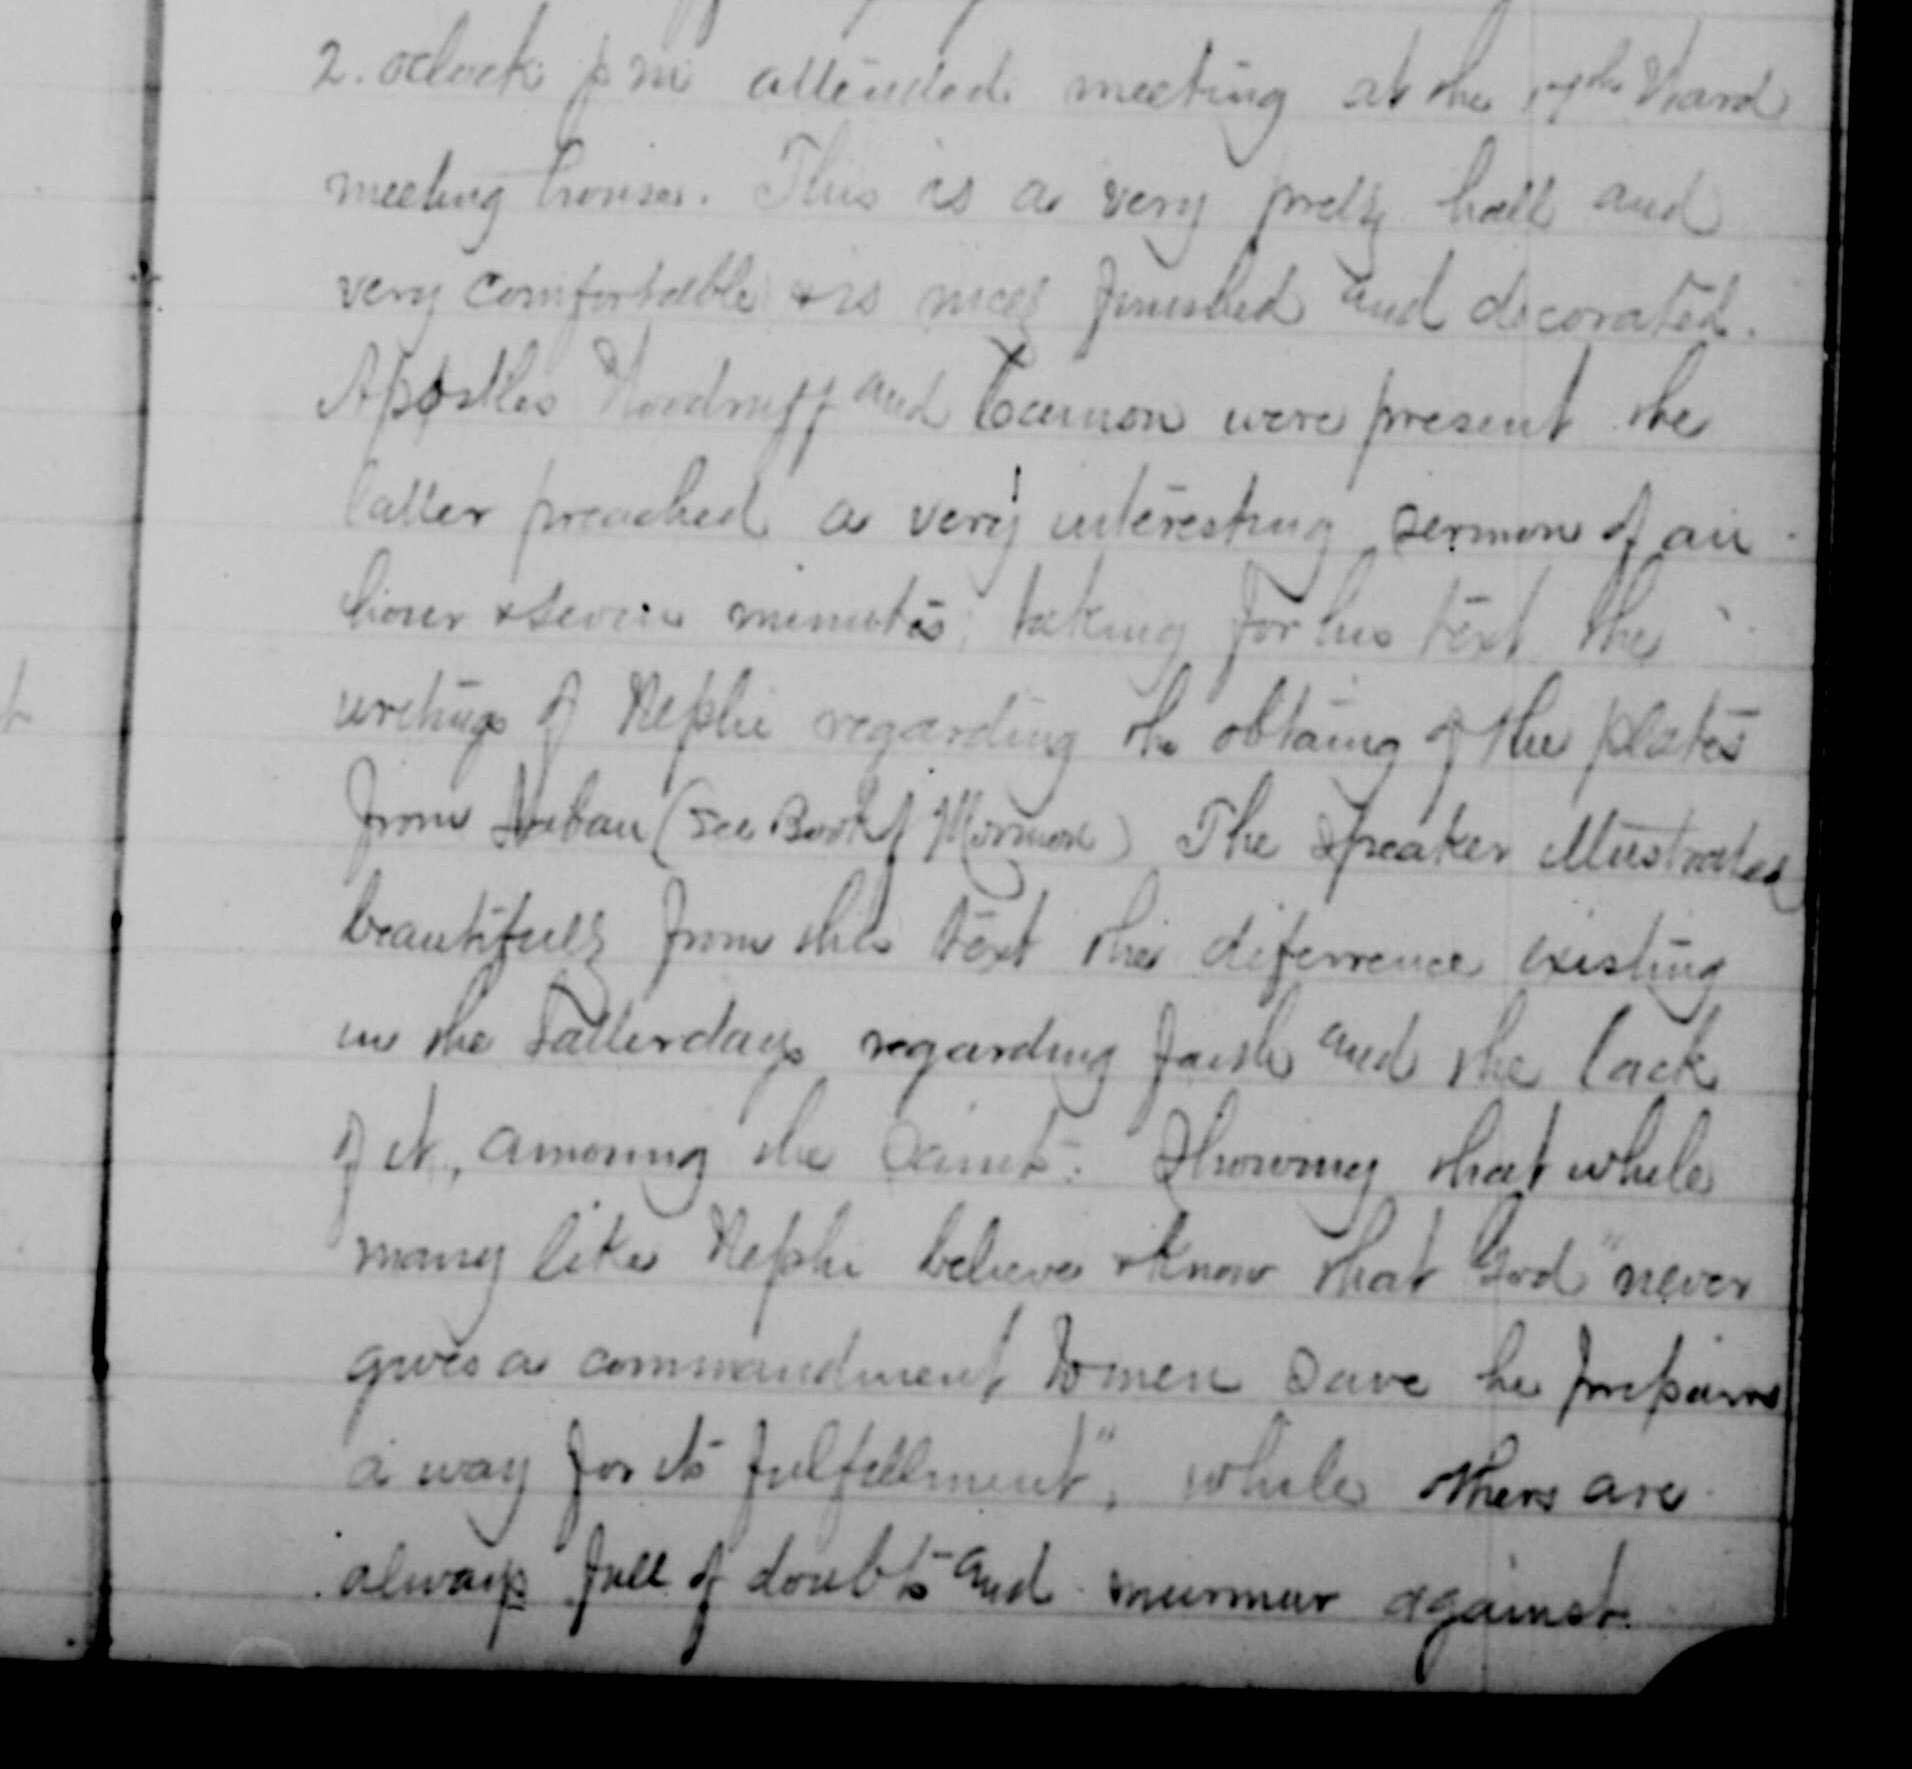 2. oclock p m attended meeting at the 17th Ward
meeting house. This is a very prety hall and
very comfortable & is nicely finished and decorated.
Apostles Woodruff and Cannon were present the
latter preached a very interesting sermon of an
hour & seven minutes, taking for his text the
writings of Nephi regarding the obtaing of the plates
from Laban (see Book of Mormon) The Speaker illustrated
beautifully from this text the diferrence existing
in the Latterdays regarding faith and the lack
of it, amoung the Saints. Showing that while
many like Nephi believe & know that God "never
gives a commandment to men save he prepares
a way for its fulfillment", while others are
always full of doubts and murmur against